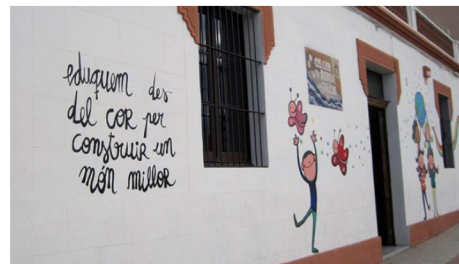 eduquem des
del COR per
construir un
món millor